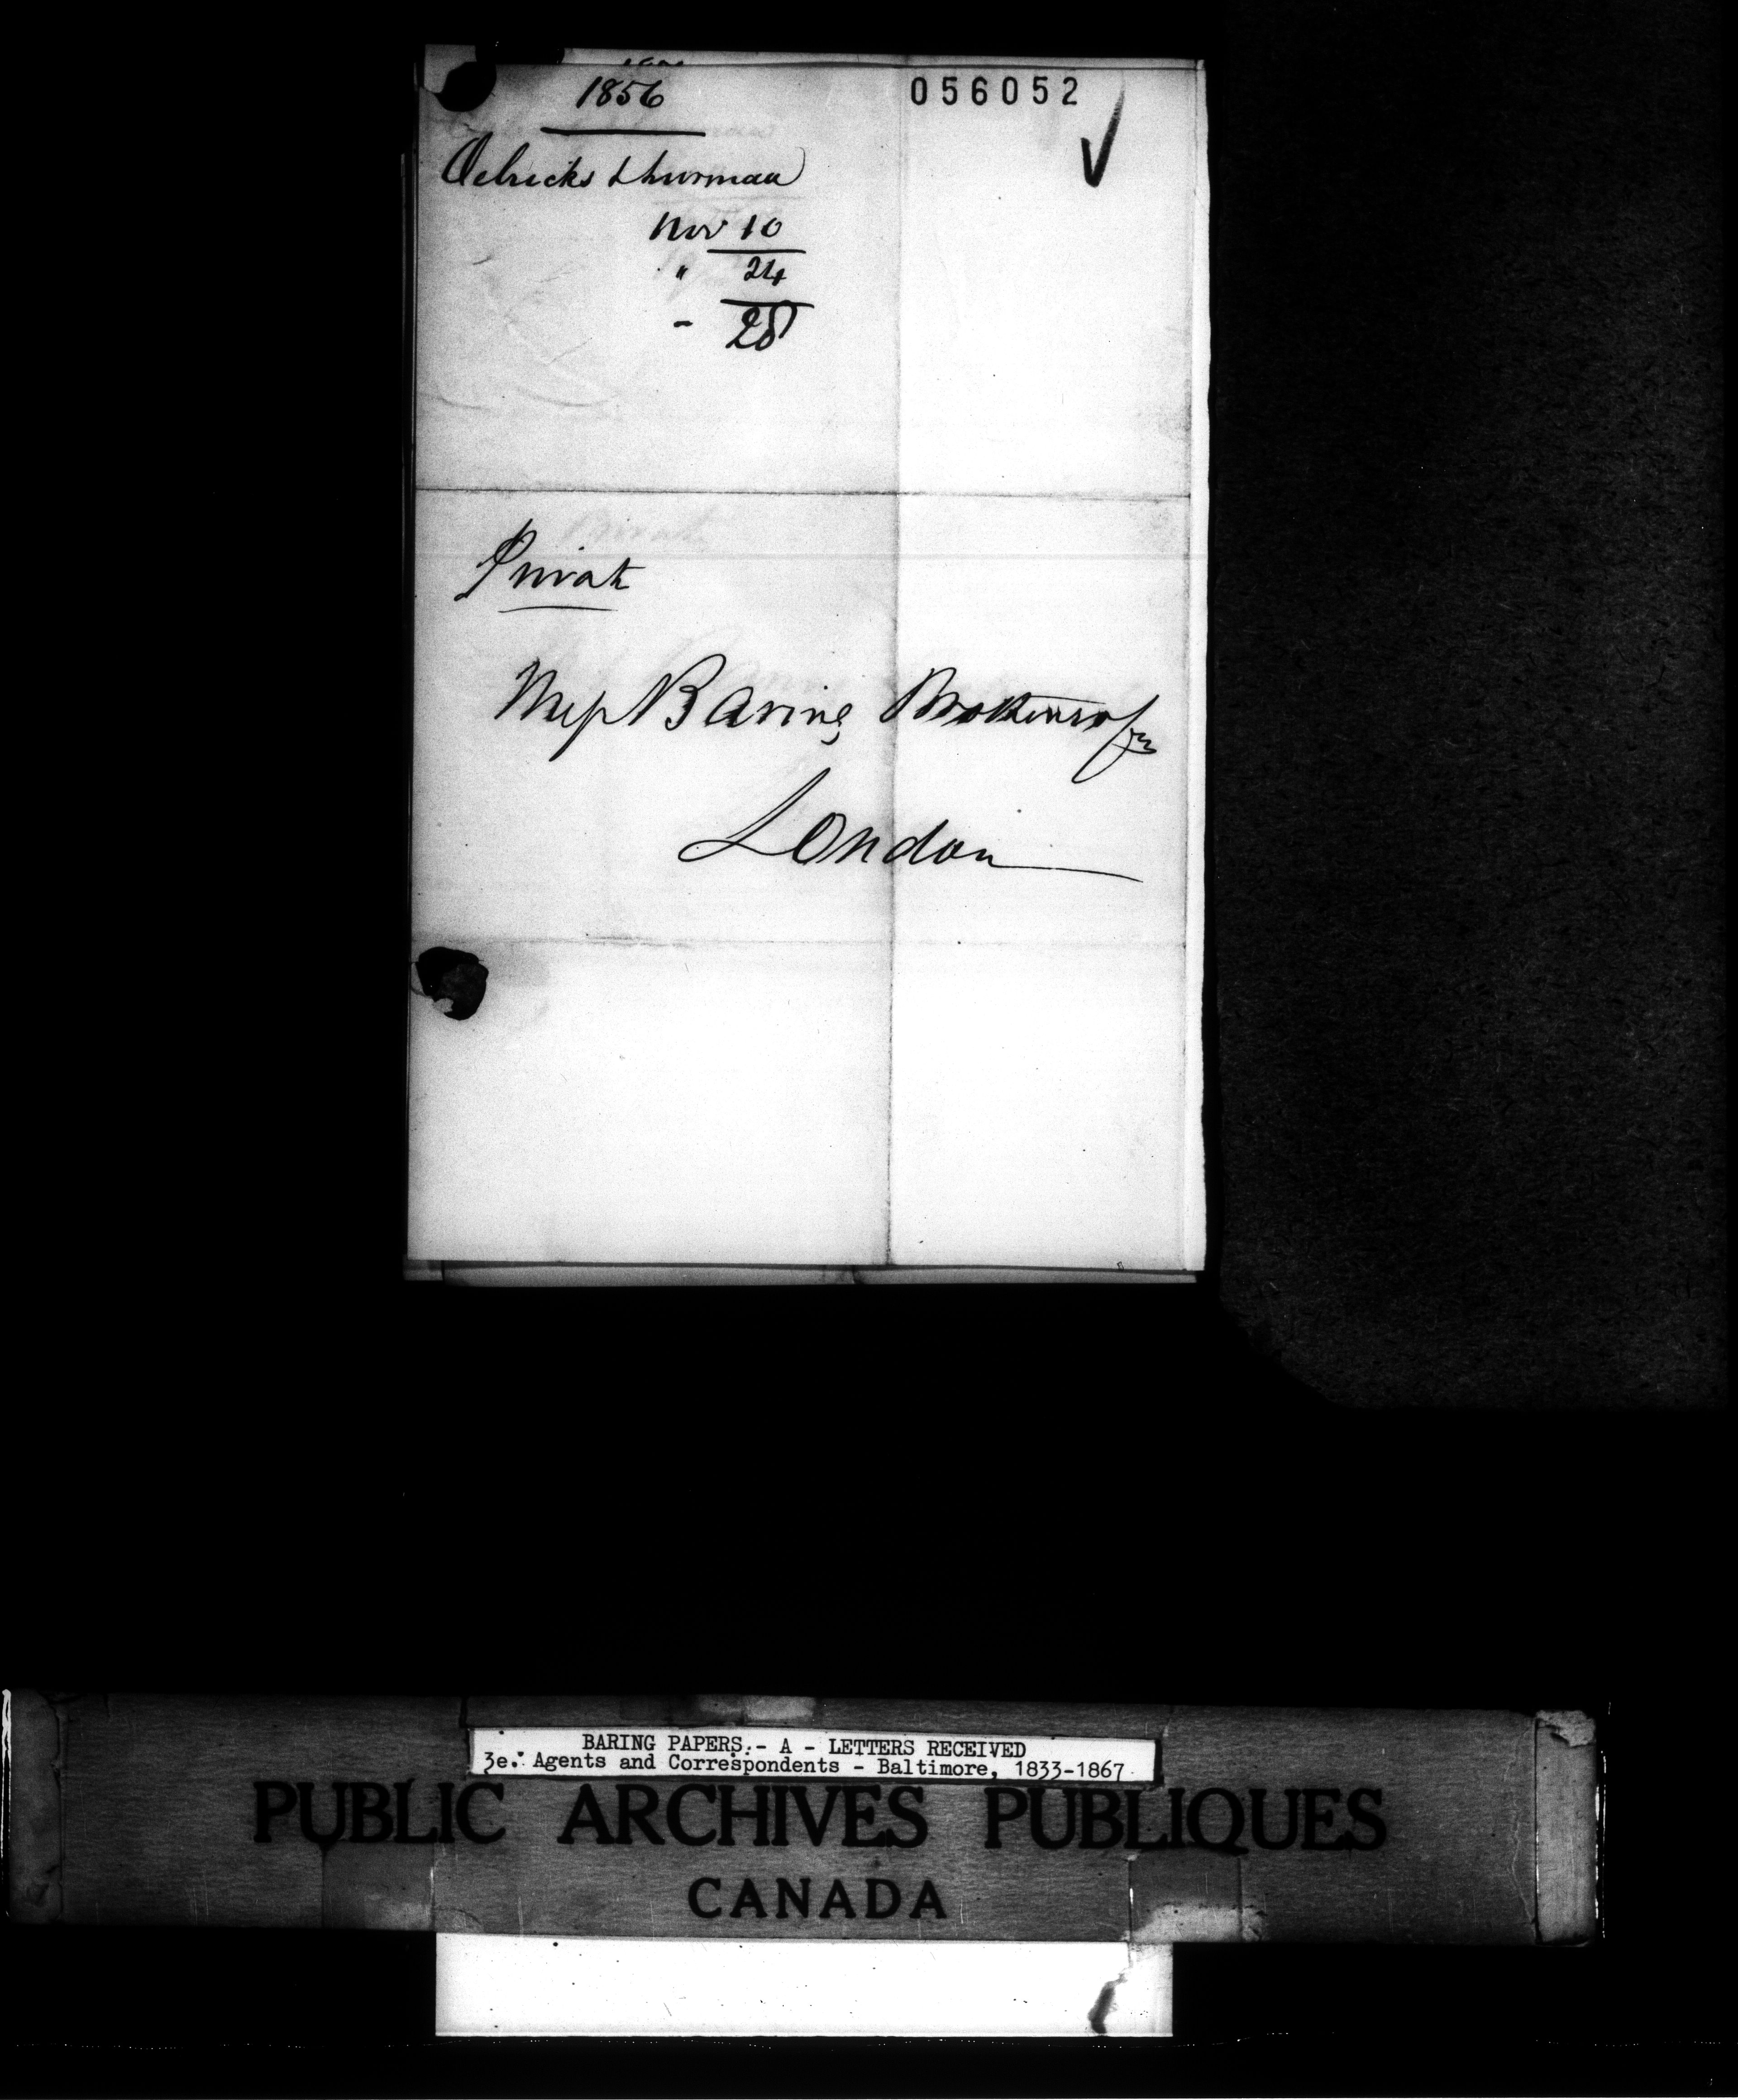 1856
056052
Oelricks & Lurman
Nov 10
" 24
- 28
Private
Messrs Baring Brothers & Co
London
BARING PAPERS.- A - LETTERS RECEIVED
3e. Agents and Correspondents - Baltimore, 1833-1867
PUBLIC ARCHIVES PUBLIQUES
CANADA